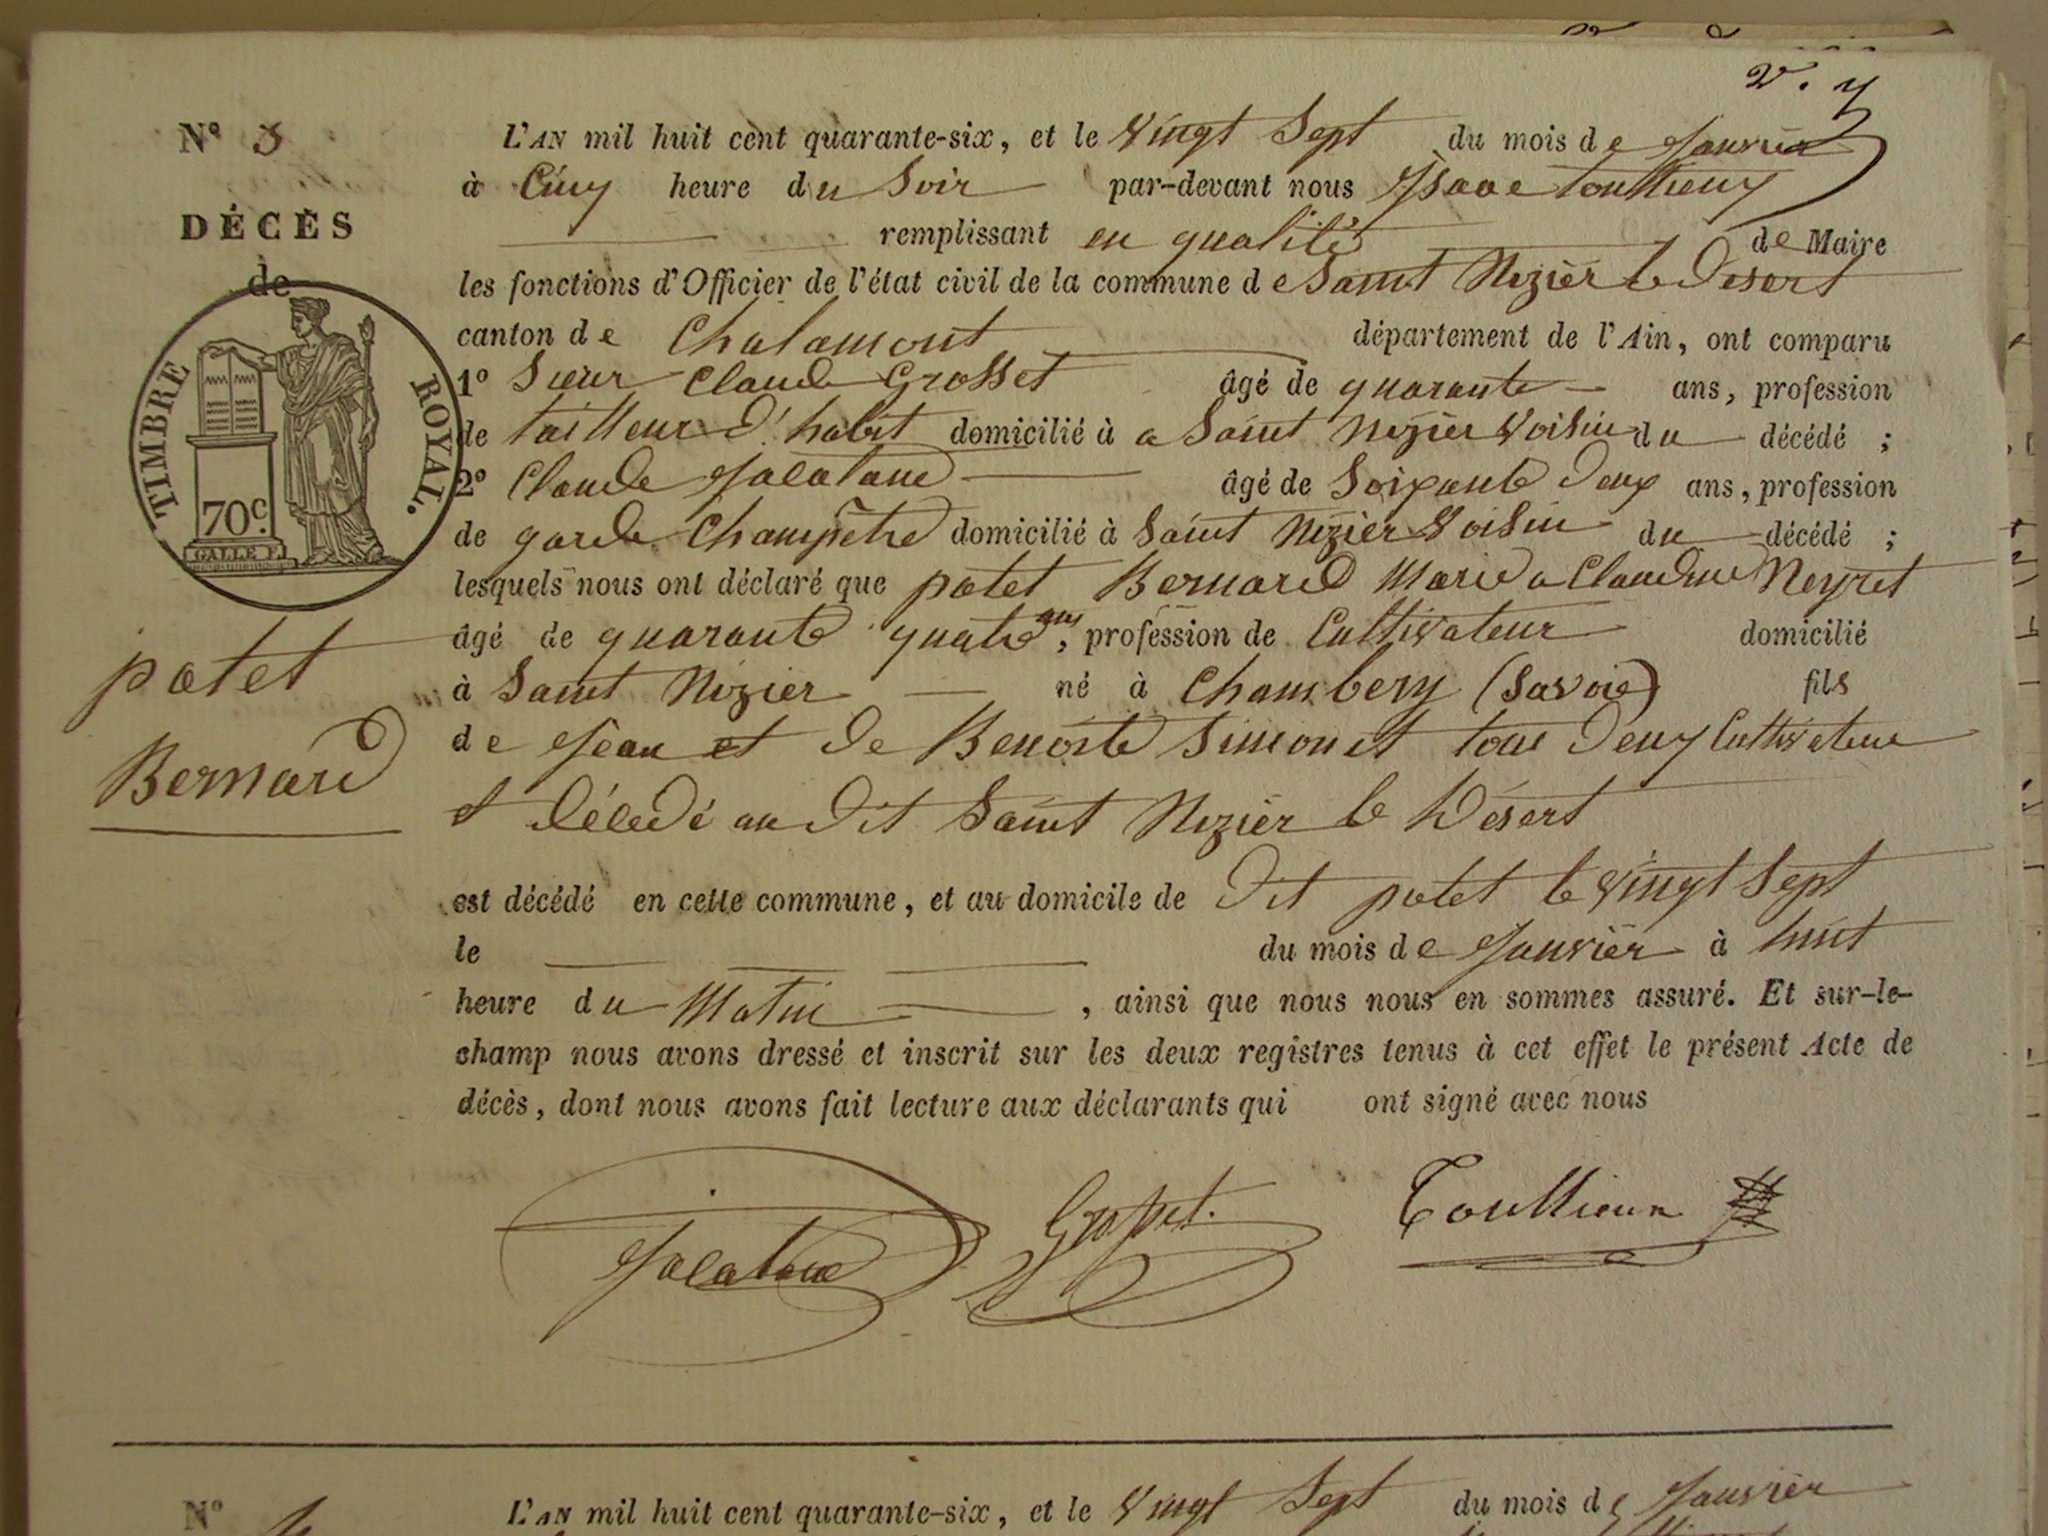 2. y
N° 3
DÉCÈS
de
TIMBRE ROYAL.
70c.
GALLE F.
patet
Bernard
L'AN mil huit cent quarante-six, et le vingt Sept du mois de Janvier
à Cinq heure du Soir par-devant nous Isaac Toullieux
remplissant en qualité de Maire
les fonctions d'Officier de l'état civil de la commune de Saint Nizier le Désert
canton de Chalamont département de l'Ain, ont comparu
1° Sieur Claude Grosset âgé de quarante ans, profession
de tailleur d'habit domicilié à a Saint Nizier Voisin du décédé ;
2° Claude âgé de Soixante deux ans, profession
de garde Champêtre domicilié à Saint Nizier Voisin du décédé ;
lesquels nous ont déclaré que patet Bernard Marié a Claudine Neyret
âgé de quarante quatre ans, profession de Cultivateur domicilié
à Saint Nizier né à Chambery (Savoie) fils
de Jean et de Benoite Simonet tous deux Cultivateur
et décédé au dit Saint Nizier le Désert
est décédé en cette commune, et au domicile de dit patet le vingt Sept
le du mois de Janvier à huit
heure du Matin , ainsi que nous nous en sommes assuré. Et sur-le-
champ nous avons dressé et inscrit sur les deux registres tenus à cet effet le présent Acte de
décès, dont nous avons fait lecture aux déclarants qui ont signé avec nous
Grosset. Toullieux
N° 4
L'AN mil huit cent quarante-six, et le vingt Sept du mois de Janvier